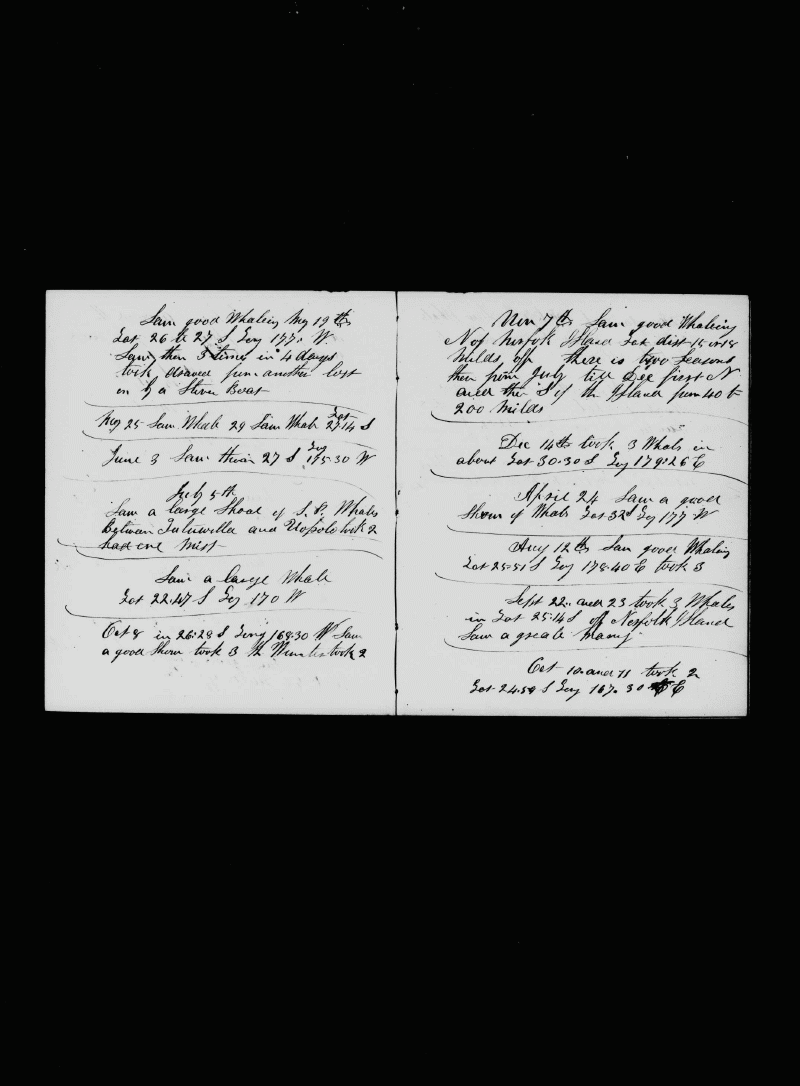 Saw good Whaleing May 19th
Lat 26 to 27 S Long 177. W.
Saw them 3 times in 4 days
took drawed from another lost
on by a Stove Boat
May 25 Saw Whale 29 Saw Whale Lat 27.14 S
June 3 Saw them 27 S Log 175.30 W
July 5th
Saw a large Shoal of S. P. Whales
between and took 2
had one Mist
Saw a large Whale
Lat 22.47 S Log 170 W
Oct 8 in 26.28 S Long 168.30 W Saw
a good Show took 3 the took 2
Nov 7th Saw good Whaleing
N of Norfolk Island Lat dist 15 or 18
Milds off there is two seasons
then from July till Dec first N
and then S of the Island from 40 to
200 Milds
Dec 14th took 3 Whals in
about Lat 30.30 S Log 179.26 E
April 24 Saw a good
Show of Whals Lat 32 S Log 177 W
Aug 12th Saw good Whaling
Lat 25.51 S Log 178.40 E took 3
Sept 22. and 23 took 3 Whales
in Lat 25.14 S of Norfolk Island
Saw a greate many
Oct 10. and 11 took 2
Lat 24.50 S Log 167. 30 E